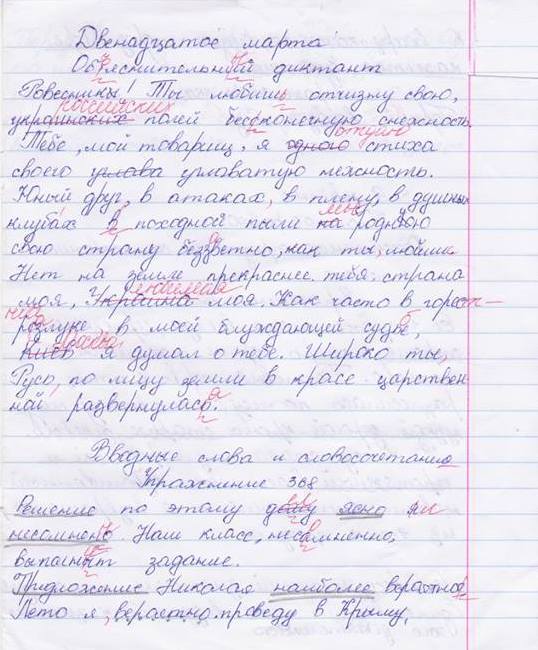 Двенадцатое марта
Объяснительный диктант
Ровесники! Ты любишь отчизну свою,
российских
украинских полей бесконечную снежность.
отдую
Тебе, мой товарищ, я одного стиха
своего углава угловатую нежность.
Юный друг, в атаках, в плену, в душных
клубах в походной пыли на родную
свою страну беззветно, как ты, любим.
Нет на земле прекраснее тебя страна
любимая
моя, Украина моя. Как часто в горест-
ной
розлуке, в моей блуждающей судьбе,
Москва
Киев я думал о тебе. Широко ты,
Русь, по лицу земли в красе царствен-
ной развернулась.
Вводные слова и словосочетания
Упражнение 368
Решение по этому делу ясно и
несомнено. Наш класс, несомненно,
выполнит задание.
Предложение Николая наиболее вероятное
Лето я, вероятно проведу в Крыму,